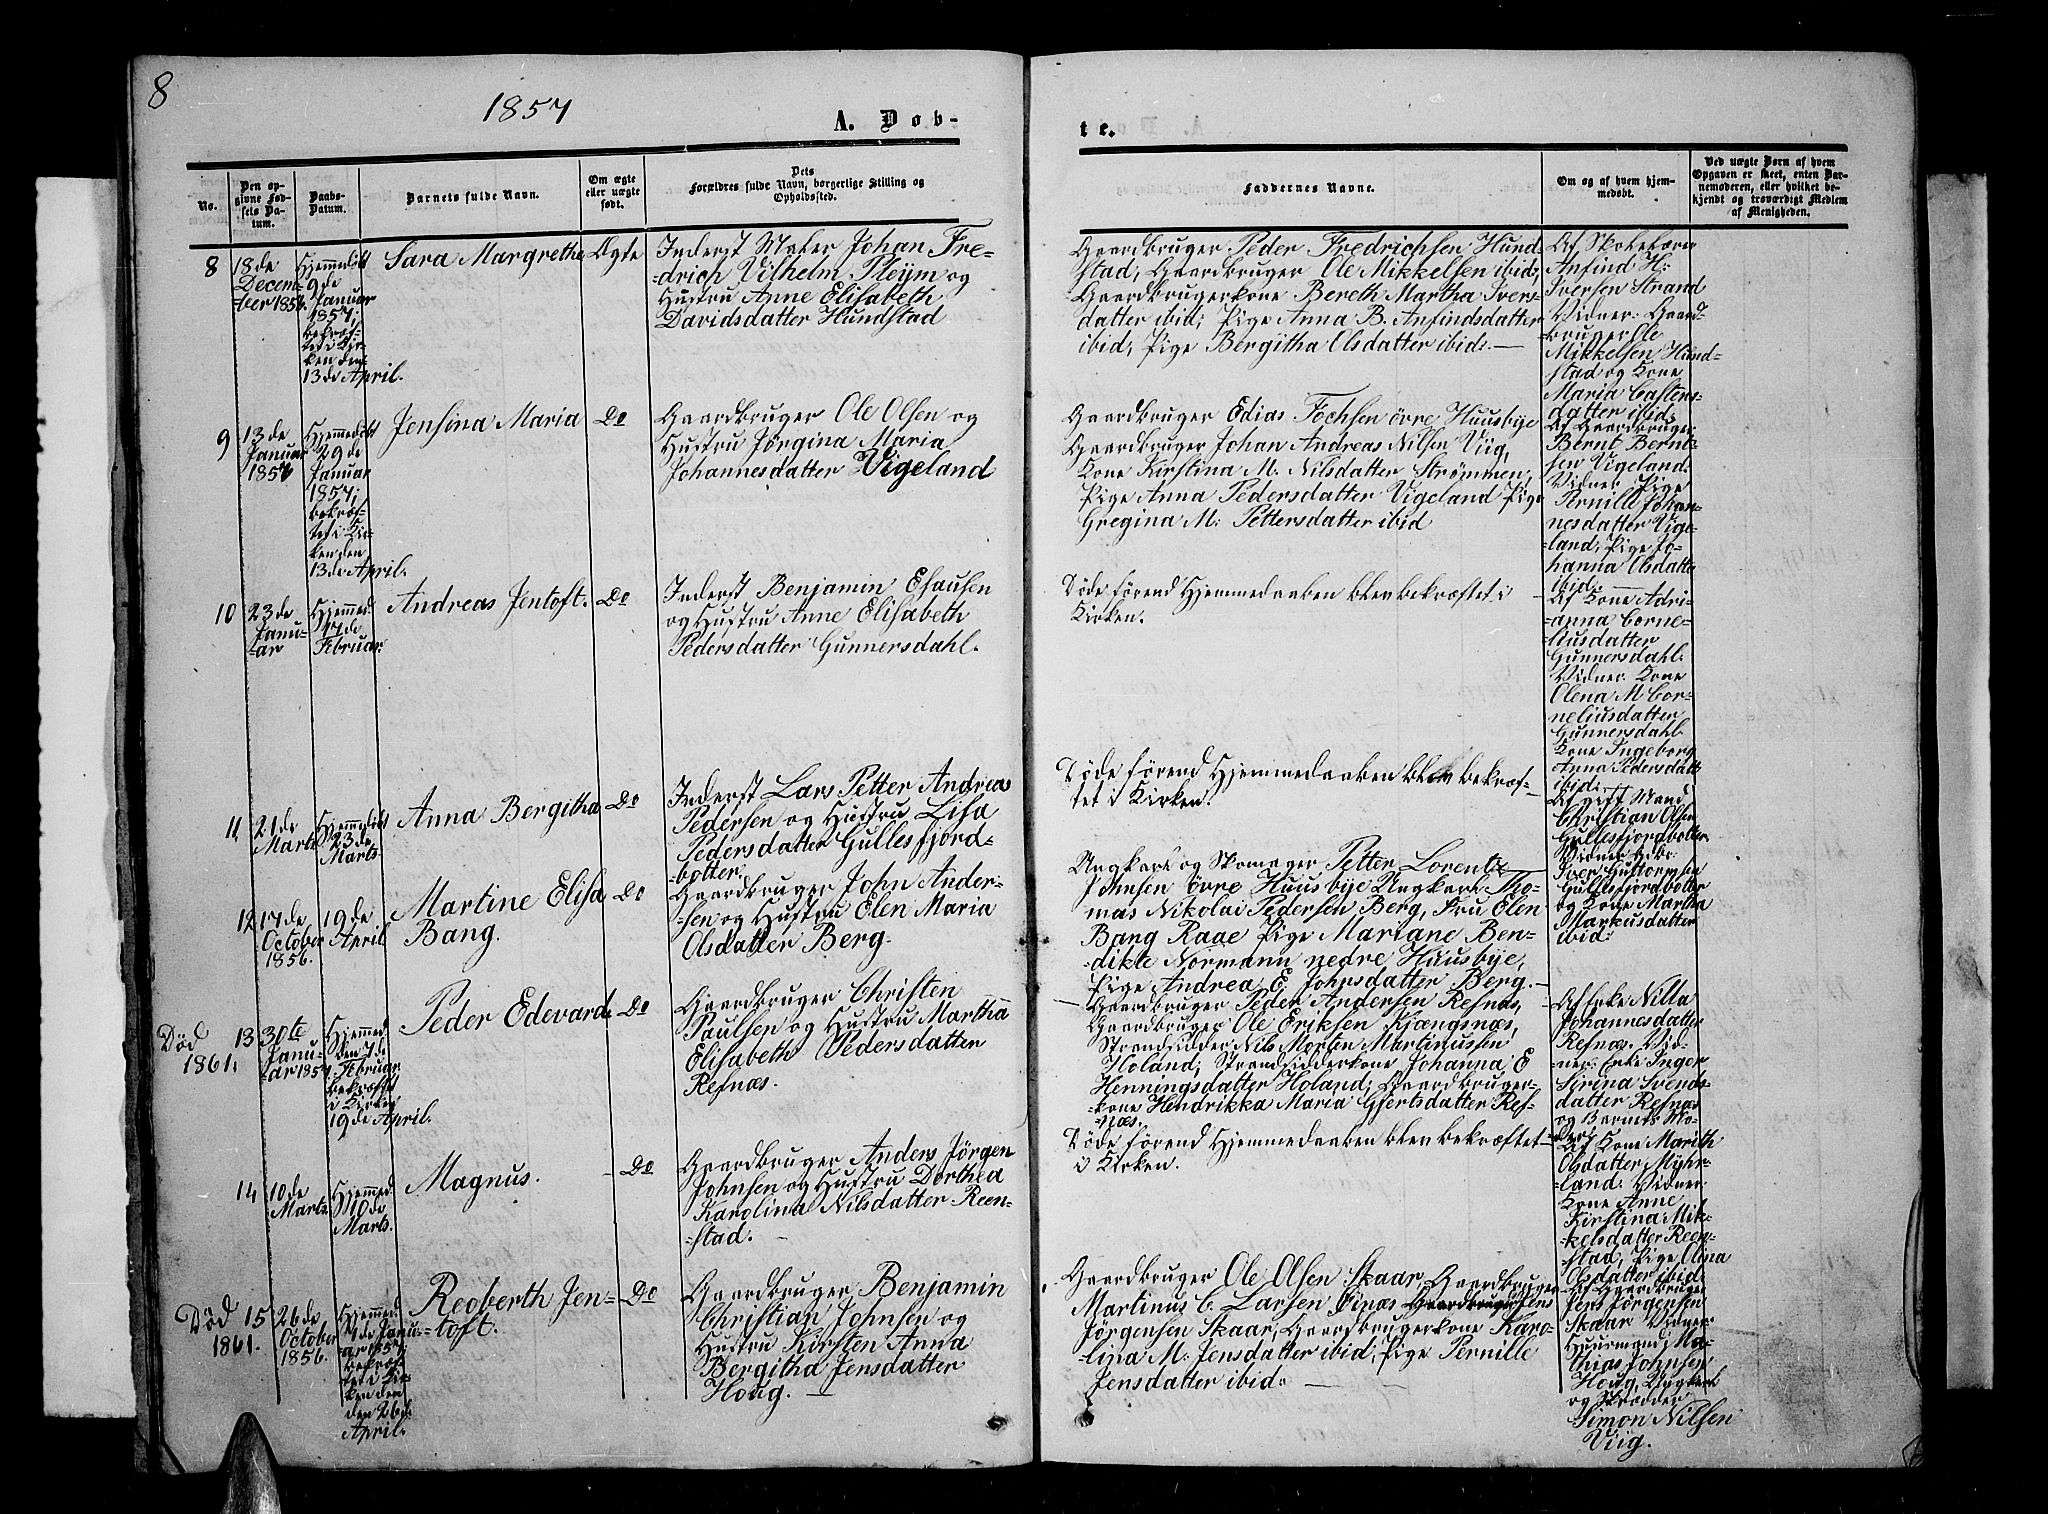 8
1857
A. Døb-
te.
No.
Den op-
givne Fød-
sels Da-
tum.
Daabs-
Datum.
Barnets fulde Navn.
Om ægte
eller uægte
født.
Dets
Forældres fulde Navn, borgerlige Stilling og
Opholdssted.
Faddernes Navne.
Om og af hvem hjem-
medøbt.
Ved uægte Børn af hvem
Opgaven er skeet, enten Bar-
nemoderen, eller hvilket be-
kjendt og troværdigt Medlem
af Menigheden.
8
18de
Decem-
ber 1856.
Hjemmedøbt
9de
Januar
1857;
bekræf-
tet i Kir-
ken den
13de April.
Sara Margrethe
Ægte
Inderst Maler Johan Fre-
-drich Vilhelm Pleym og
Hustru Anne Elisabeth
Davidsdatter Hundstad.
Gaardbruger Peder Fredrichsen Hund-
stad, Gaardbruger Ole Mikkelsen ibid;
Gaardbrugerkone Bereth Martha Ivers-
datter ibid; Pige Anna B. Anfindsdatter
ibid, Pige Bergitha Olsdatter ibid. —
Af Skolelærer
Anfind H:
Iversen Strand
Vidner: Gaard-
bruger Ole
Mikkelsen Hund-
stad og Kone
Maria Castens-
datter ibid.
9
13de
Januar
1857
Hjemmedøbt
29de
Januar
1857;
bekræf-
tet i Kir-
ken den
13de April.
Jensina Maria
Do
Gaardbruger Ole Olsen og
Hustru Jørgina Maria
Johannesdatter Vigeland
Gaardbruger Edias Fochsen övre Huusbye
Gaardbruger Johan Andreas Nilsen Viig,
Kone Kirstina M. Nilsdatter Strømmen,
Pige Anna Pedersdatter Vigeland Pige
Gregina M: Pettersdatter ibid
Af Gaardbruger
Bernt Bernt-
sen Vigeland.
Vidner Pige
Pernille Johan-
nesdatter Vige-
-land, Pige Jo-
hanna Olsdatter
ibid.
10
23de
Janu-
-ar
Hjemmed
17de
Februar.
Andreas Jentoft.
Do
Inderst Benjamin Esausen
og Hustru Anne Elisabeth
Pedersdatter Gunnersdahl.
Døde førend Hjemmedaaben blev bekræftet i
Kirken.
Af Kone Adri-
-anna Corne-
liusdatter
Gunnersdahl.
Vidner: Kone
Olena M Cor-
neliusdatter
Gunnersdahl
Kone Ingeborg
Anna Pedersdatt
ibid.
11
21de
Marts
Hjemmedøbt
23de
Marts.
Anna Bergitha
Do
Inderst Lars Petter Andreas
Pedersen og Hustru Lisa
Pedersdatter Gullesfjord-
-botter.
Døde førend Hjemmedaaben blev bekræf-
tet i Kirken.
Af gift Mand
Christian Olsen
Gullesfjordbotter
Vidner Gdbr:
Iver Guttormsen
Gullesfjordbotter
og Kone Martha
Markusdatter
ibid.
12
17de
October
1856.
19de
April
Martine Elisa
Bang.
Do
Gaardbruger John Ander-
-sen og Hustru Elen Maria
Olsdatter Berg.
Ungkarl og Skomager Petter Lorentz
Johnsen övre Huusbye Ungkarl Tho-
mas Nikolai Pedersen Berg, Fru Elen
Bang Raae Pige Mariane Ben-
-dikte Normann nedre Huusbye,
Pige Andrea E Johnsdatter Berg. —
Død
1861.
13
30te
Janu-
-ar 1857.
Hjemmed
den 7de
Februar
bekræftet
i Kirken
19de April.
Peder Edevard.
Do
Gaardbruger Christen
Paulsen og Hustru Martha
Elisabeth Pedersdatter
Refnæs.
Gaardbruger Peder Andersen Refnæs,
Gaardbruger Ole Eriksen Kjængsnæs,
Strandsidder Nils Morten Martinussen
Holand; Strandsidderkone Johanna E
Henningsdatter Holand; Gaardbruger-
-kone Hendrikka Maria Gjertsdatter Ref-
-næs.
Af Enke Nilla
Johannesdatter
Refnæs. Vid-
ner: Enke Inger
Sirina Svends-
datter Refnæs
og Barnets Mo-
der.
14
10de
Marts.
Hjemmed
10de
Marts.
Magnus.
Do
Gaardbruger Anders Jørgen
Johnsen og Hustru Dorthea
Karolina Nilsdatter Reen-
-stad.
Døde førend Hjemmedaaben blev bekræftet
i Kirken.
Af Kone Marith
Olsdatter Myhr-
-land. Vidner
Kone Anne
Kirstina Mik-
kelsdatter Reen-
stad, Pige Olina
Olsdatter ibid.
Død
1861.
15
26de
October
1856.
Hjemmed
1de Janu-
-ar 1857;
bekræf-
tet i Kir-
ken den
den 26de
April.
Reoberth Jen-
-toft.
Do
Gaardbruger Benjamin
Christian Johnsen og
Hustru Kirsten Anna
Bergitha Jensdatter
Houg. —
Gaardbruger Ole Olsen Skaar, Gaardbruger
Martinus C. Larsen Finæs Gaardbruger Jens
Jørgensen Skaar, Gaardbrugerkone Karo-
-lina M. Jensdatter ibid, Pige Pernille
Jensdatter ibid.
Af Gaardbruger
Jens Jørgensen
Skaar Vidner
Huusmand Ma-
thias Johnsen
Houg, Ungkarl
og Skrædder
Simon Nilsen
Viig.